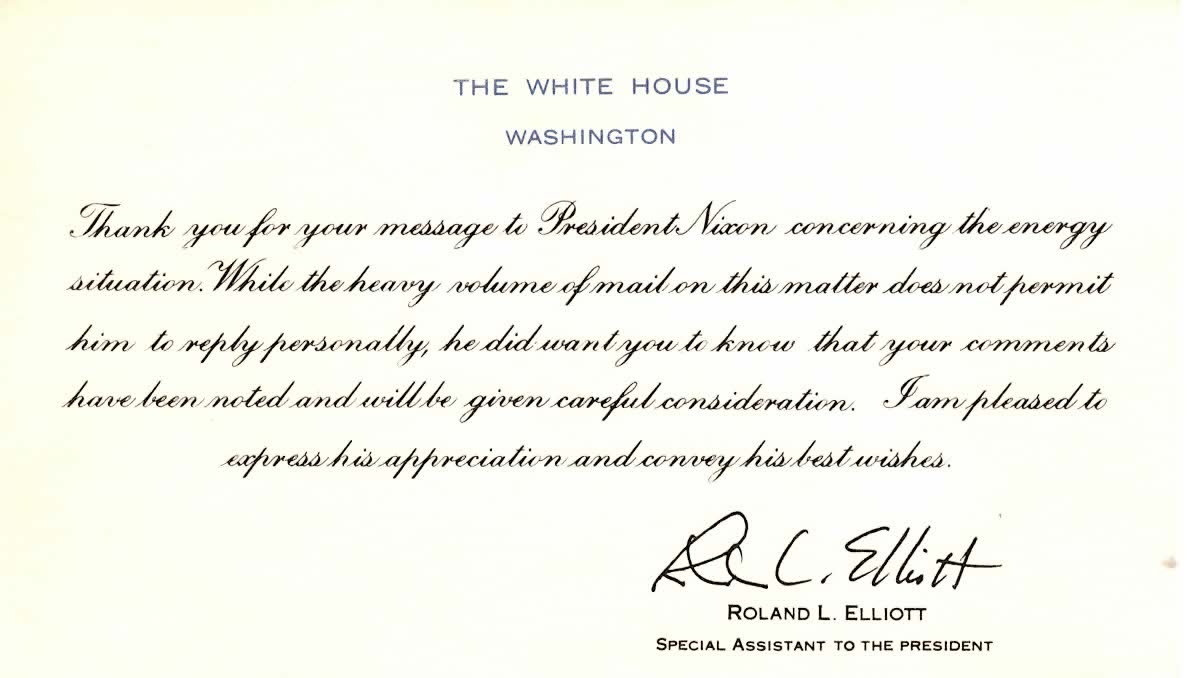 THE WHITE HOUSE
WASHINGTON
Thank you for your message to President Nixon concerning the energy
situation. While the heavy volume of mail on this matter does not permit
him to reply personally, he did want you to know that your comments
have been noted and will be given careful consideration. I am pleased to
express his appreciation and convey his best wishes.
Roland L. Elliott
ROLAND L. ELLIOTT
SPECIAL ASSISTANT TO THE PRESIDENT